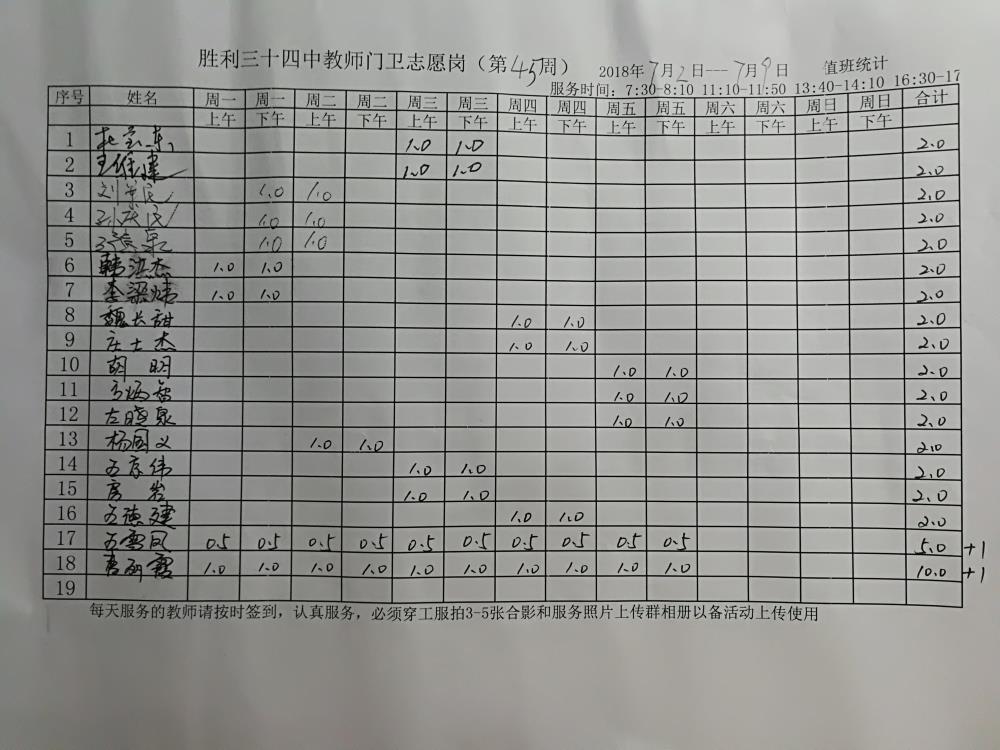 胜利三十四中教师门卫志愿岗（第45周） 2018年7月2日---7月9日 值班统计
服务时间：7:30-8:10 11:10-11:50 13:40-14:10 16:30-17
序号 姓名 周一 周一 周二 周二 周三 周三 周四 周四 周五 周五 周六 周六 周日 周日 合计
上午 下午 上午 下午 上午 下午 上午 下午 上午 下午 上午 下午 上午 下午
1 1.0 1.0 2.0
2 王维建 1.0 1.0 2.0
3 1.0 1.0 2.0
4 孙庆民 1.0 1.0 2.0
5 1.0 1.0 2.0
6 韩洪杰 1.0 1.0 2.0
7 李梁炜 1.0 1.0 2.0
8 魏长甜 1.0 1.0 2.0
9 庄士杰 1.0 1.0 2.0
10 胡明 1.0 1.0 2.0
11 1.0 1.0 2.0
12 左晓泉 1.0 1.0 2.0
13 杨国义 1.0 1.0 2.0
14 1.0 1.0 2.0
15 房岩 1.0 1.0 2.0
16 王德建 1.0 1.0 2.0
17 王雪凤 0.5 0.5 0.5 0.5 0.5 0.5 0.5 0.5 0.5 0.5 5.0 +1
18 1.0 1.0 1.0 1.0 1.0 1.0 1.0 1.0 1.0 1.0 10.0 +1
19
每天服务的教师请按时签到，认真服务，必须穿工服拍3-5张合影和服务照片上传群相册以备活动上传使用